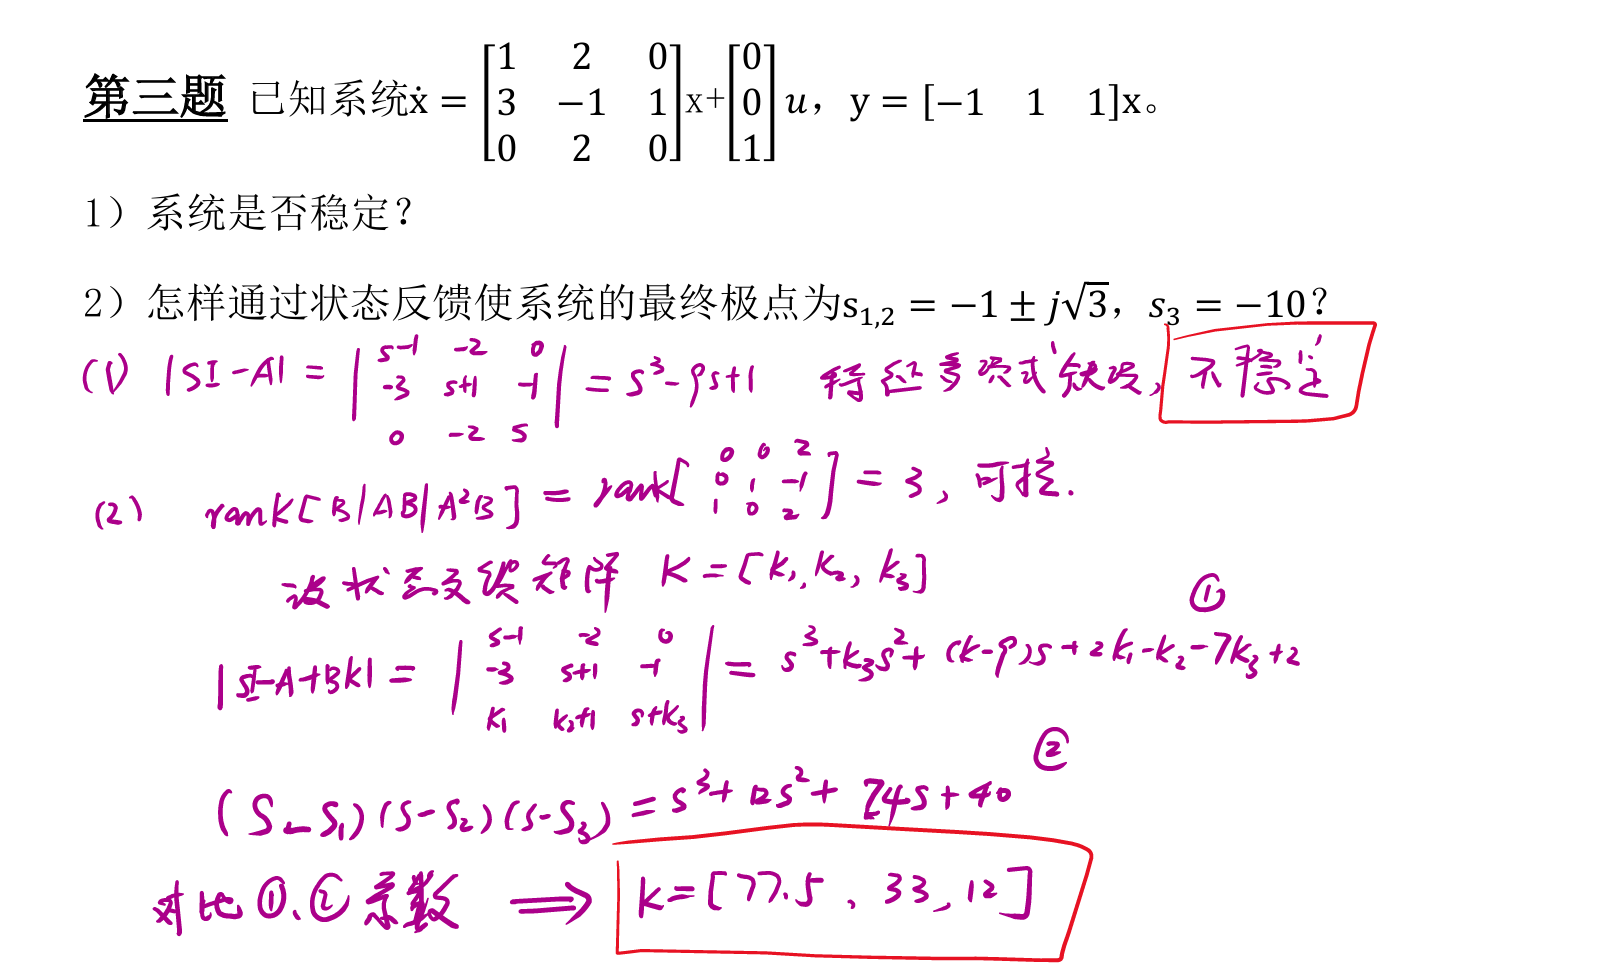 第三题 已知系统ẋ = [1 2 0; 3 −1 1; 0 2 0]x+[0; 0; 1]u，y = [−1 1 1]x。
1）系统是否稳定？
2）怎样通过状态反馈使系统的最终极点为s₁,₂ = −1 ± j√3，s₃ = −10？
(1) |SI-A| = |s-1 -2 0; -3 s+1 -1; 0 -2 s| = s³-9s+1 特征多项式缺项, 不稳定
(2) rank[B|AB|A²B] = rank[0 0 2; 0 1 -1; 1 0 2] = 3, 可控.
设状态反馈矩阵 K = [k₁, k₂, k₃]
①
|sI-A+BK| = |s-1 -2 0; -3 s+1 -1; k₁ k₂+1 s+k₃| = s³+k₃s²+(k-9)s+2k₁-k₂-7k₃+2
②
(S-S₁)(S-S₂)(S-S₃) = s³+12s²+24s+40
对比①、②系数 ⟹ k=[77.5、33,12]